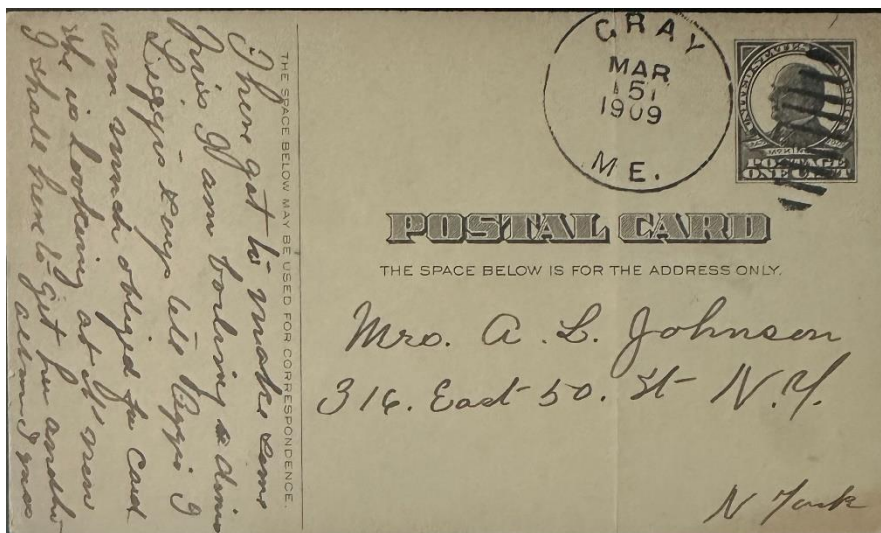 GRAY
MAR
15
1909
ME.
UNITED STATES AMERICA
POSTAGE
ONE CENT
POSTAL CARD
THE SPACE BELOW IS FOR THE ADDRESS ONLY.
Mrs. A. L. Johnson
316. East 50. St N.Y.
N York
THE SPACE BELOW MAY BE USED FOR CORRESPONDENCE.
I have got to make some
Pies I am boiling a dinner
says tell I
am much obliged for card
she is looking at it now
I shall have to get her another